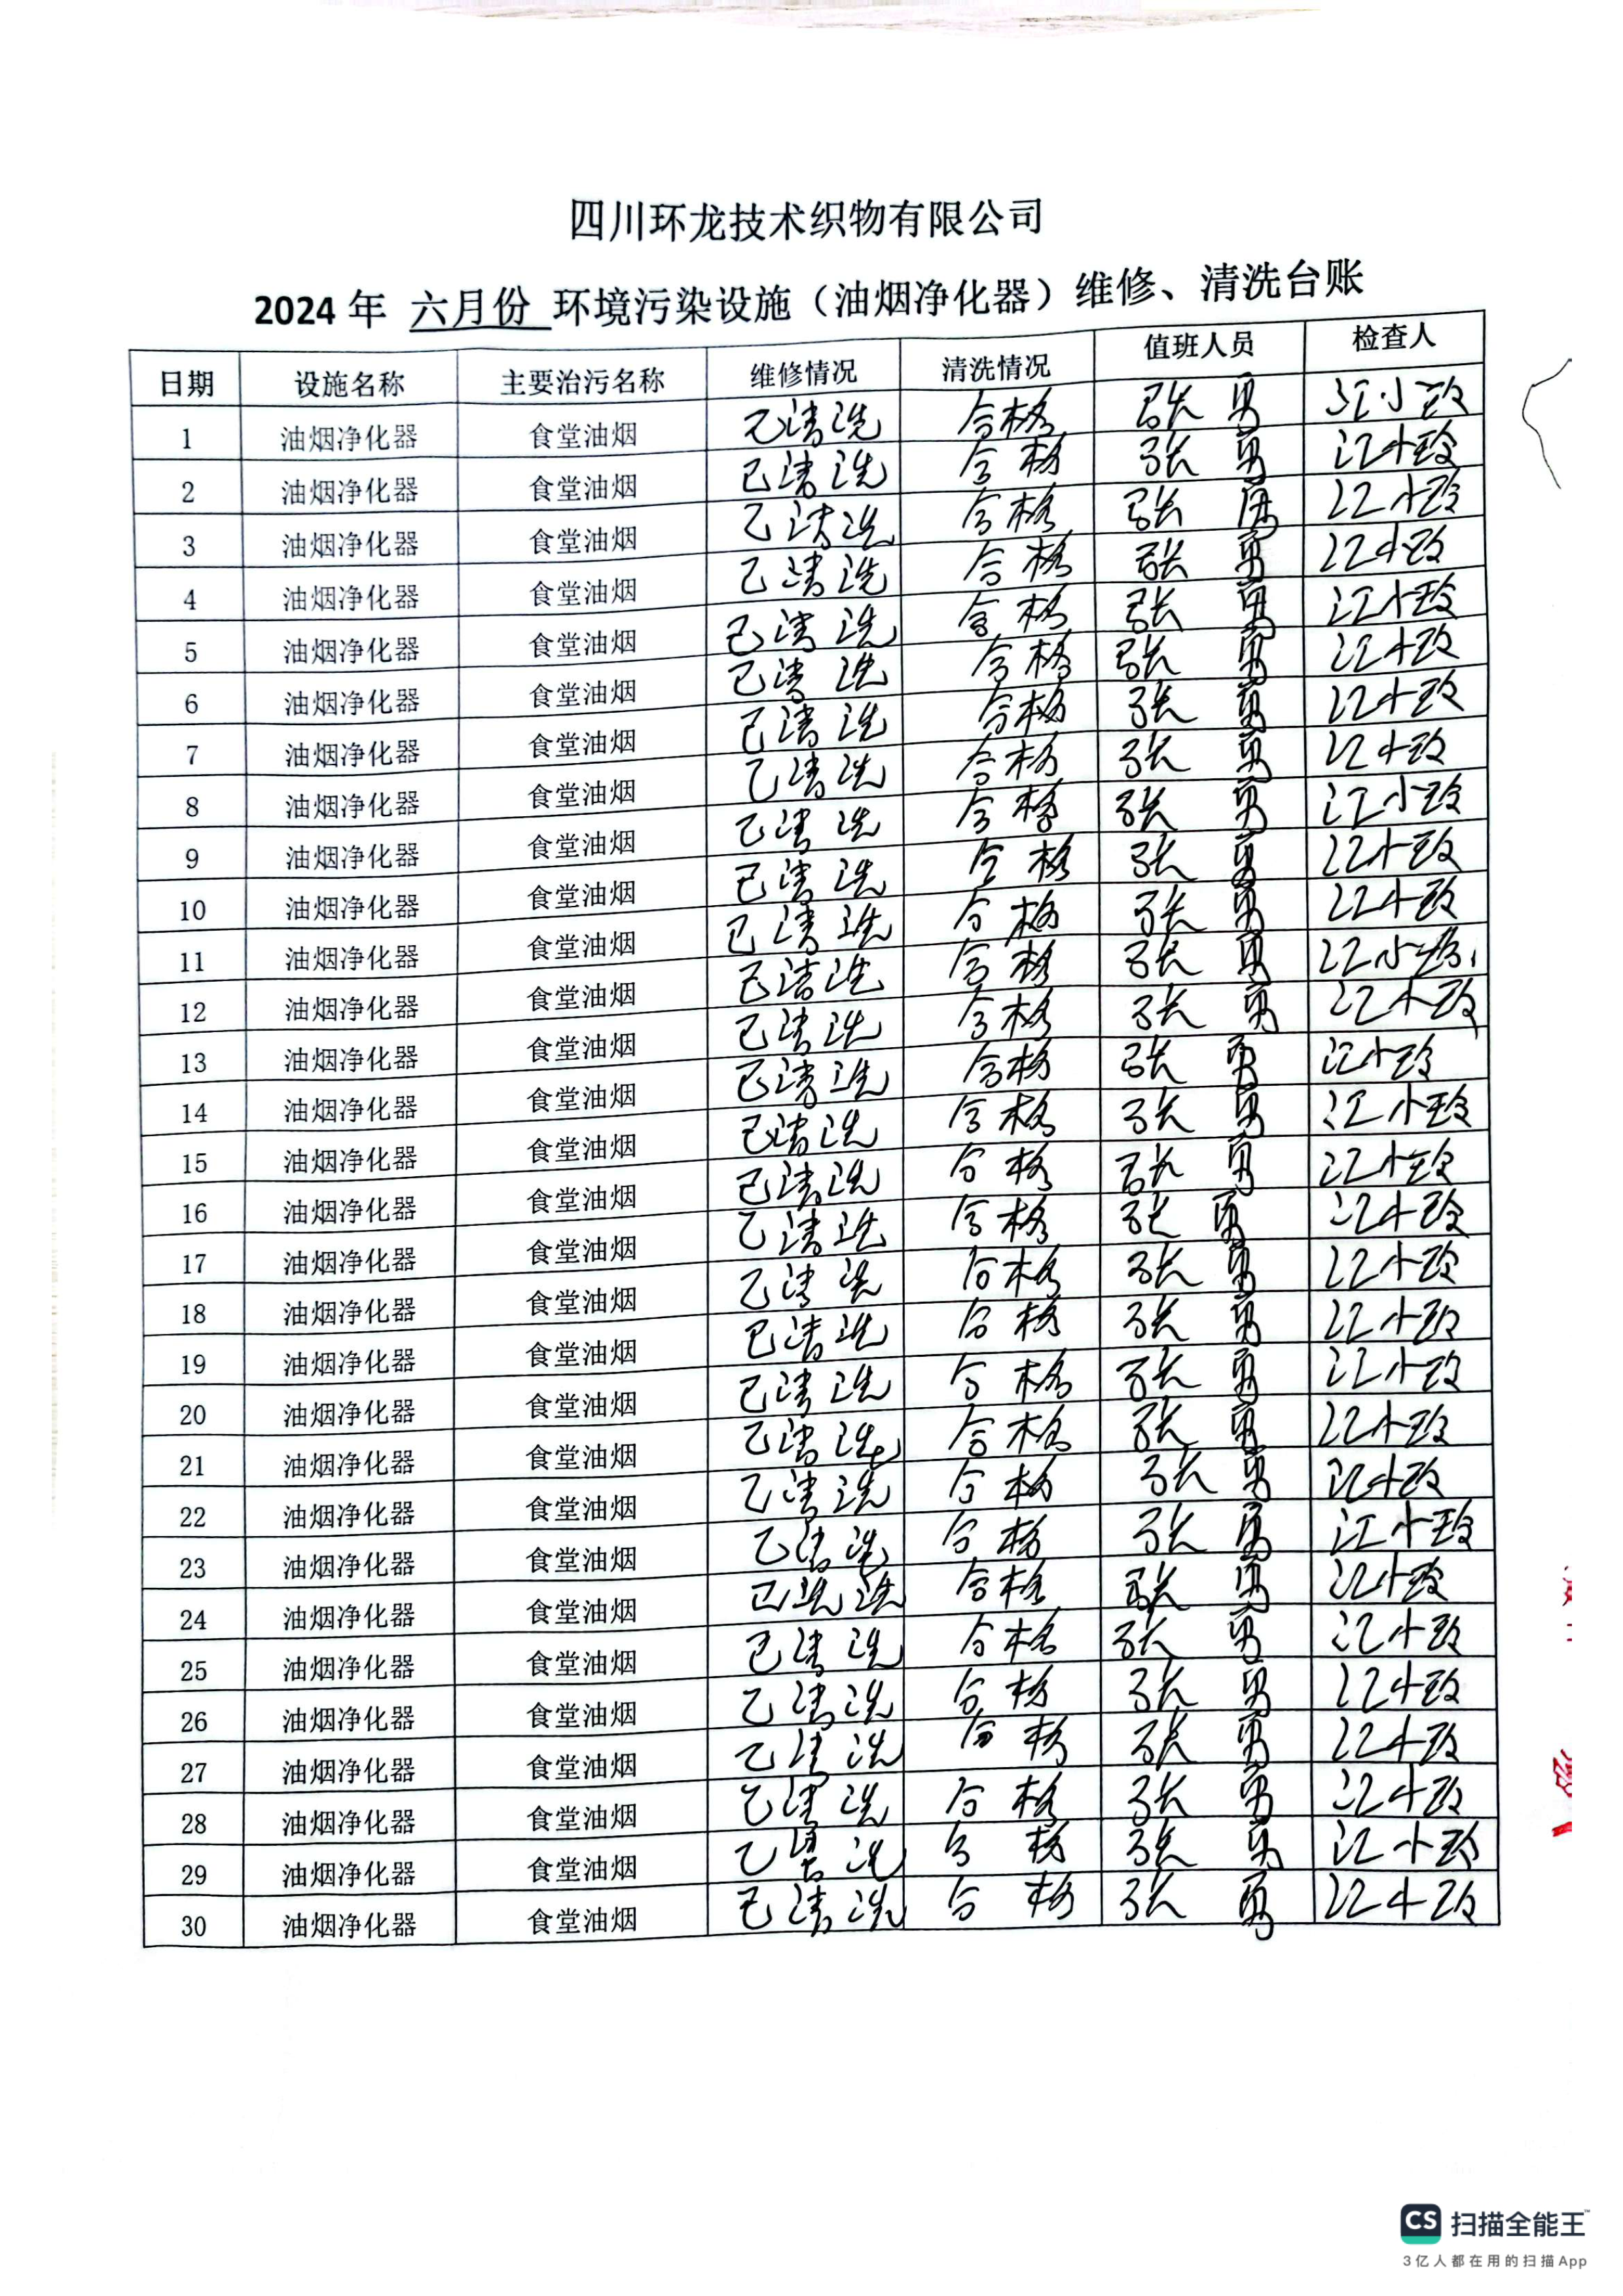 四川环龙技术织物有限公司
2024 年 六月份 环境污染设施（油烟净化器）维修、清洗台账
日期 设施名称 主要治污名称 维修情况 清洗情况 值班人员 检查人
1 油烟净化器 食堂油烟 已清洗 合格 张勇 江小玲
2 油烟净化器 食堂油烟 已清洗 合格 张勇 江小玲
3 油烟净化器 食堂油烟 已清洗 合格 张勇 江小玲
4 油烟净化器 食堂油烟 已清洗 合格 张勇 江小玲
5 油烟净化器 食堂油烟 已清洗 合格 张勇 江小玲
6 油烟净化器 食堂油烟 已清洗 合格 张勇 江小玲
7 油烟净化器 食堂油烟 已清洗 合格 张勇 江小玲
8 油烟净化器 食堂油烟 已清洗 合格 张勇 江小玲
9 油烟净化器 食堂油烟 已清洗 合格 张勇 江小玲
10 油烟净化器 食堂油烟 已清洗 合格 张勇 江小玲
11 油烟净化器 食堂油烟 已清洗 合格 张勇 江小玲
12 油烟净化器 食堂油烟 已清洗 合格 张勇 江小玲
13 油烟净化器 食堂油烟 已清洗 合格 张勇 江小玲
14 油烟净化器 食堂油烟 已清洗 合格 张勇 江小玲
15 油烟净化器 食堂油烟 已清洗 合格 张勇 江小玲
16 油烟净化器 食堂油烟 已清洗 合格 张勇 江小玲
17 油烟净化器 食堂油烟 已清洗 合格 张勇 江小玲
18 油烟净化器 食堂油烟 已清洗 合格 张勇 江小玲
19 油烟净化器 食堂油烟 已清洗 合格 张勇 江小玲
20 油烟净化器 食堂油烟 已清洗 合格 张勇 江小玲
21 油烟净化器 食堂油烟 已清洗 合格 张勇 江小玲
22 油烟净化器 食堂油烟 已清洗 合格 张勇 江小玲
23 油烟净化器 食堂油烟 已清洗 合格 张勇 江小玲
24 油烟净化器 食堂油烟 已洗洗 合格 张勇 江小玲
25 油烟净化器 食堂油烟 已清洗 合格 张勇 江小玲
26 油烟净化器 食堂油烟 已清洗 合格 张勇 江小玲
27 油烟净化器 食堂油烟 已清洗 合格 张勇 江小玲
28 油烟净化器 食堂油烟 已清洗 合格 张勇 江小玲
29 油烟净化器 食堂油烟 已清洗 合格 张勇 江小玲
30 油烟净化器 食堂油烟 已清洗 合格 张勇 江小玲
CS 扫描全能王™
3亿人都在用的扫描App